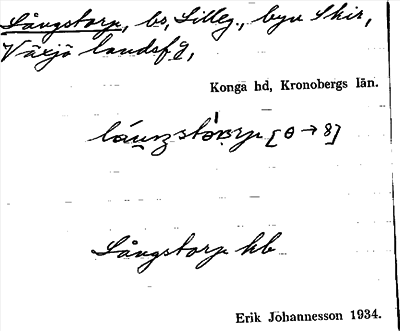 Långstorp, bs, Lilleg., byn Skir,
Växjö landsfg,
Konga hd, Kronobergs län.
[ɵ → 8]
Långstorp hb
Erik Johannesson 1934.